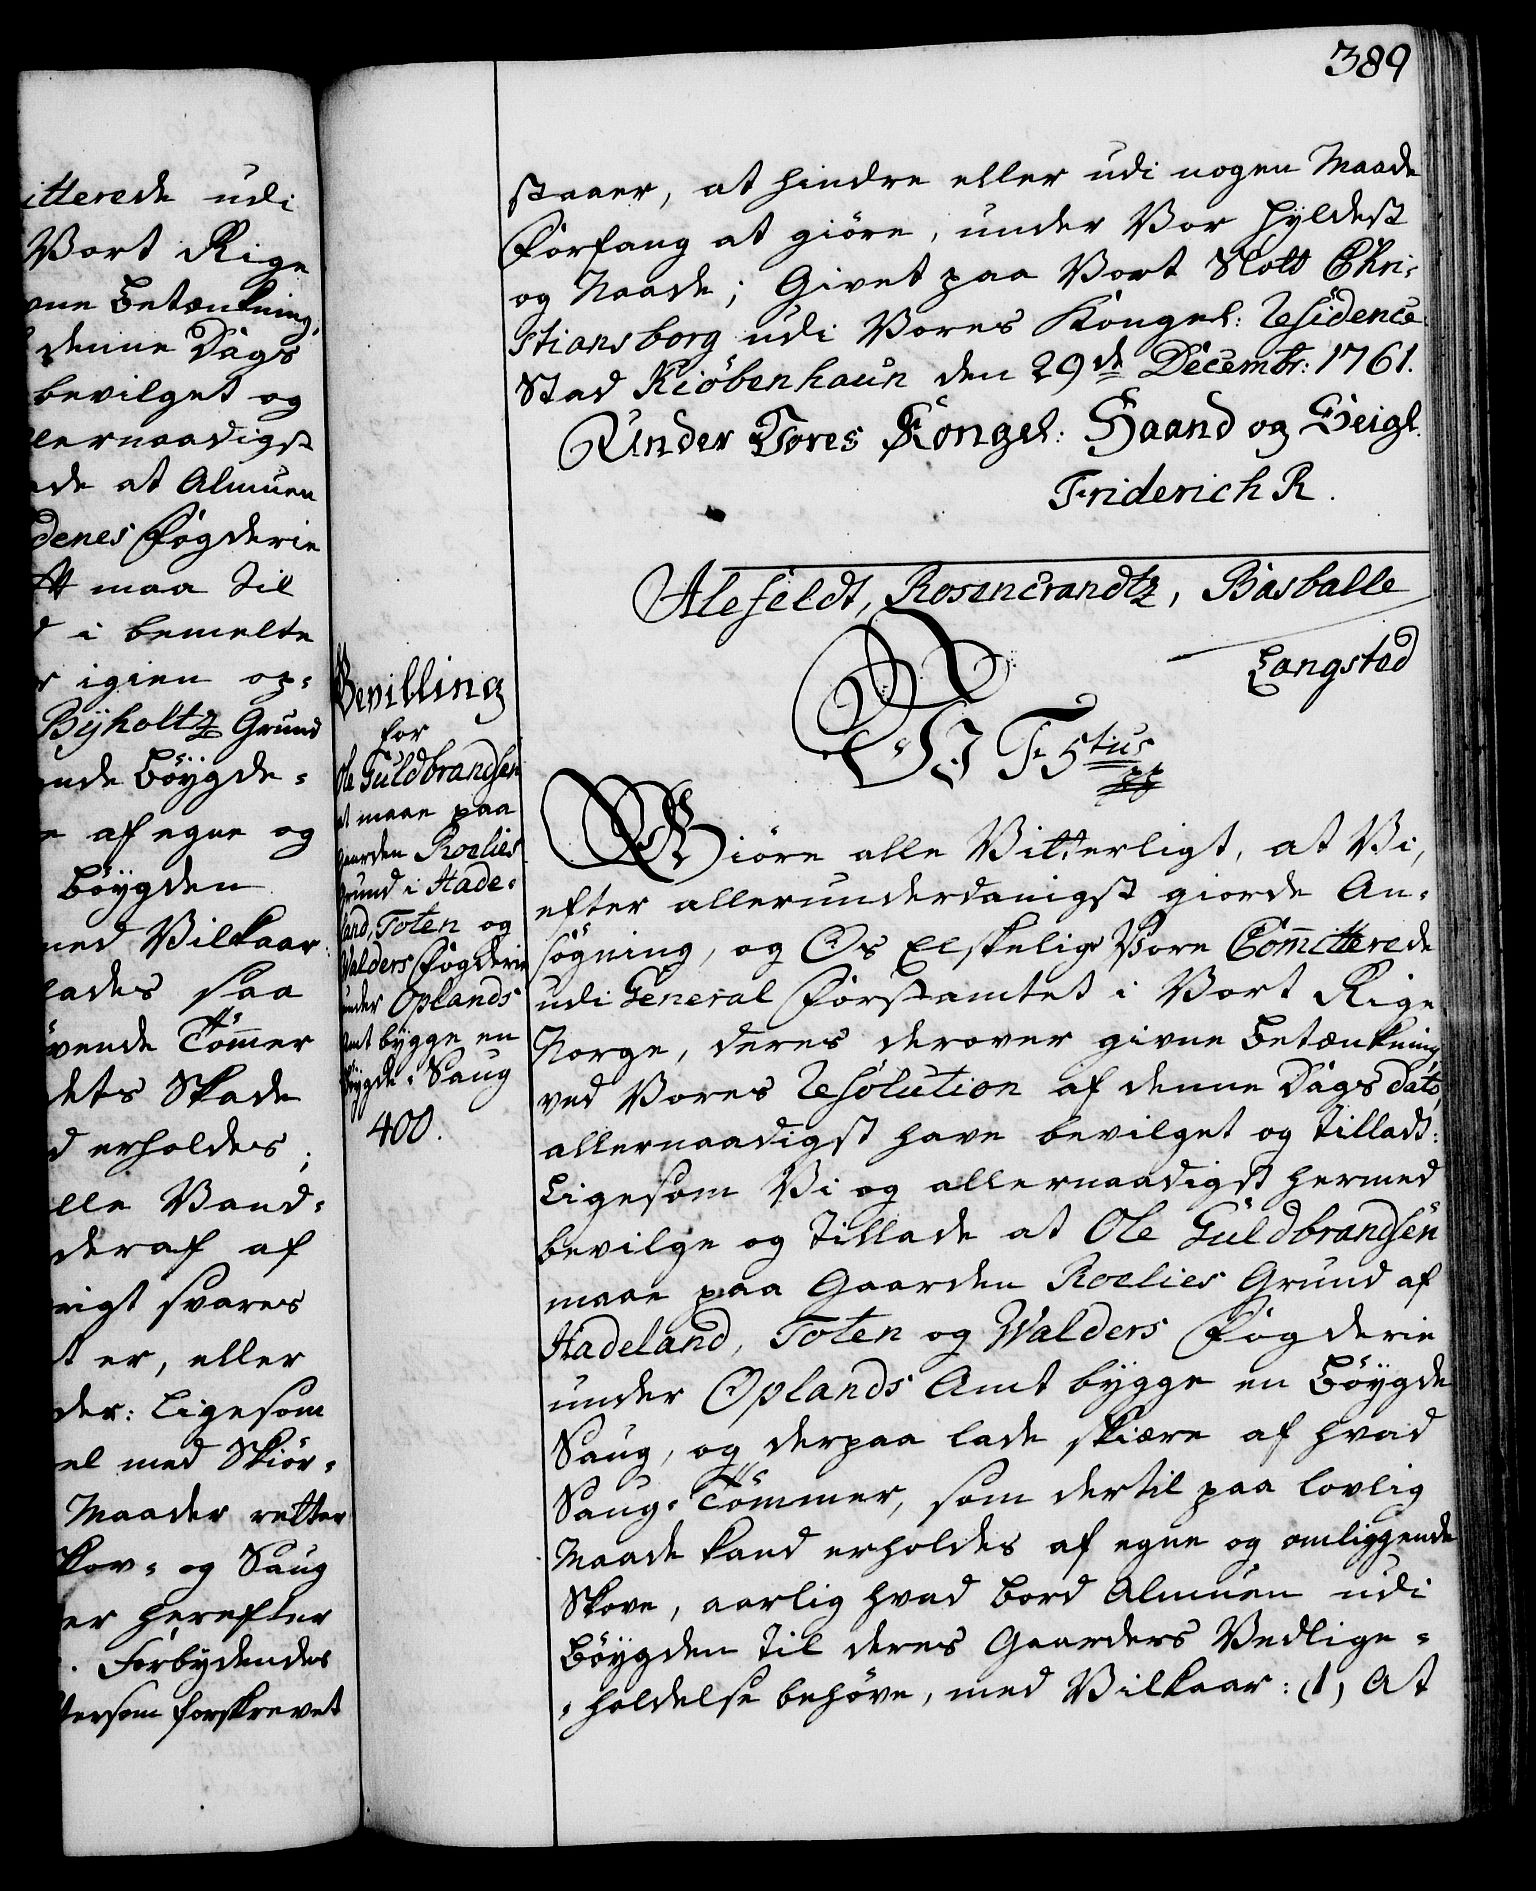 389
itterede udi
Vort Rige
vne Betænkning,
denne Dags
bevilget og
llernaadigst
ade at Almuen
denes Fogderie
tt maa til
d i bemelte
r igien op-
Byholtz Grund
ende Böygde-
e af egne og
Böygden
med Vilkaar:
lades saa
övende Tömmer
dets Skade
d erholdes;
lle Vand-
deraf af
rigt svares
t er, eller
der: Ligesom
el med Skiör-
Maader retter
Skov- og Saug
er herefter
. Forbydendes
tersom forskrevet
staaer, at hindre eller udi nogen Maade
Forfang at giöre, under Vor Hyldest
og Naade; Givet paa Vort Slott Chri-
stiansborg udi Vores Kongel: Residence
Stad Kiöbenhaun den 29de Decembr: 1761.
Under Vores Kongel: Haand og Seigl.
Friderich R.
Alefeldt, Rosencrandtz, Basballe
Langstad
Bevilling
for
Ole Guldbrandsen
at maae paa
Gaarden Roelies
Grund i Hade-
land, Toten og
Walders Fogderie
under Oplands
Amt bygge en
Böygde-Saug
400.
Vi F 5tius
pp
Giöre alle Vitterligt, at Vi,
efter allerunderdanigst giorde An-
sögning, og Os Elskelige Vore Committerede
udi General Forstamtet i Vort Rige
Norge, deres derover givne Betænkning,
ved Vores Resolution af denne Dags dato,
allernaadigst have bevilget og tilladt:
Ligesom Vi og allernaadigst hermed
bevilge og tillade at Ole Guldbrandsen
maae paa Gaarden Roelies Grund af
Hadeland, Toten og Walders Fogderie
under Oplands Amt bygge en Böygde
Saug, og derpaa lade skiære af hvad
Saug-Tömmer, som dertil paa lovlig
Maade kand erholdes af egne og omliggende
Skove, aarlig hvad Bord Almuen udi
Böygden til deres Gaarders Vedlige-
-holdelse behöve, med Vilkaar: (1, At